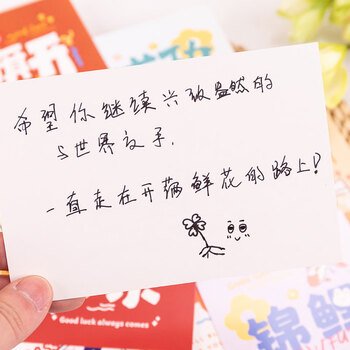 希望你继续兴致盎然的
与世界交手.
一直走在开满鲜花的路上!
Good luck always comes
锦鲤